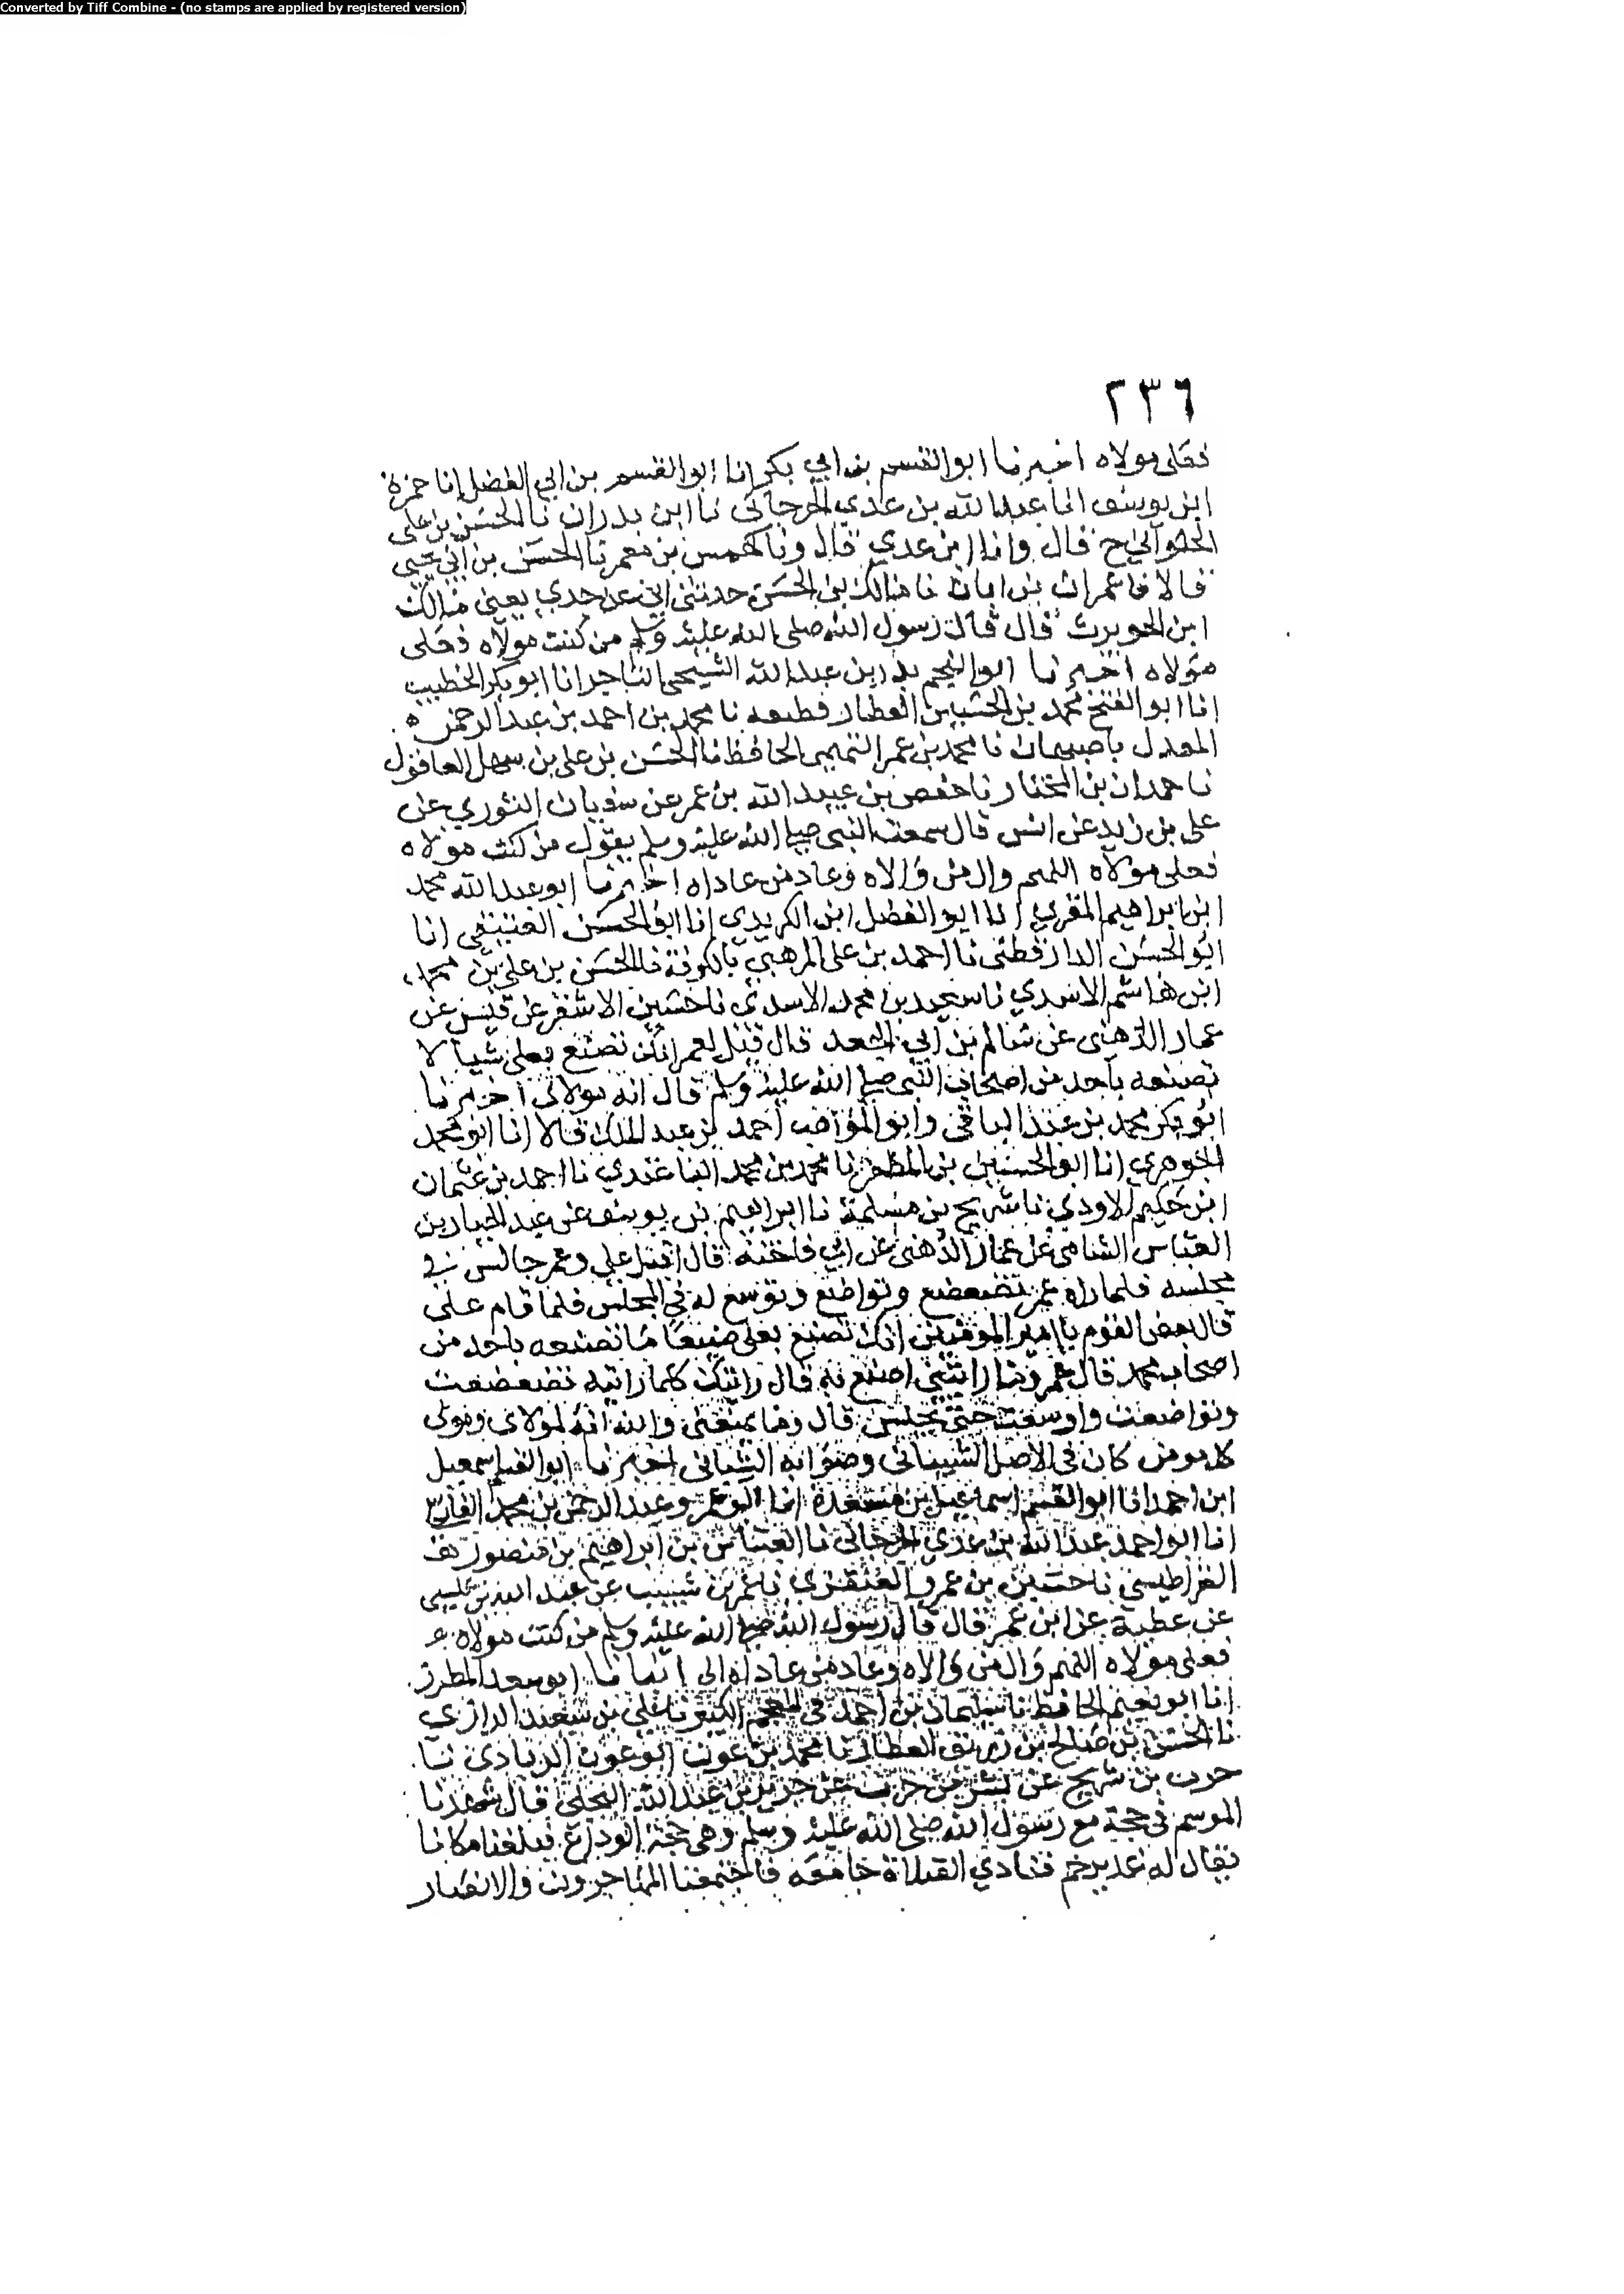 Converted by Tiff Combine - (no stamps are applied by registered version)
٢٣٦
فعلي مولاه اخبرنا ابو القسم بن ابي بكر انا ابو القسم بن ابي الفضل انا حمزة
ابن يوسف انا عبد الله بن عدي الجرجاني نا ابن بدران نا الحسن بن علي
الحلواني ح قال وانا ابن عدي قال ونا كهمس بن معمر نا الحسن بن ابي يحيى
قالا نا عمران بن ابان نا مالك بن الحسن حدثني ابي عن جدي يعني مالك
ابن الحويرث قال قال رسول الله صلى الله عليه وسلم من كنت مولاه فعلى
مولاه اخبرنا ابو النجم بدر بن عبد الله الشيحي التاجر انا ابو بكر الخطيب
انا ابو الفتح محمد بن الحسين العطار قطيط نا محمد بن احمد بن عبد الرحمن
المعدل باصبهان نا محمد بن عمر التميمي الحافظ نا الحسن بن علي بن سهل العاقول
نا حمدان بن المختار نا حفص بن عبيد الله بن عمر عن سفيان الثوري عن
على بن زيد عن انس قال سمعت النبي صلى الله عليه وسلم يقول من كنت مولاه
فعلي مولاه اللهم وال من والاه وعاد من عاداه اخبرنا ابو عبد الله محمد
ابن ابراهيم المقري انا ابو الفضل ابن الكريدي انا ابو الحسن العتيقي انا
ابو الحسن الدارقطني نا احمد بن على المرهبي بالكوفة نا الحسن بن علي بن محمد
ابن هاشم الاسدي نا سعيد بن محمد الاسدي نا حسين الاشقر عن قيس عن
عمار الدهني عن سالم بن ابي الجعد قال قيل لعمر انك تصنع بعلي شيا لا
تصنعه باحد من اصحاب النبي صلى الله عليه وسلم قال انه مولاي اخبرنا
ابو بكر محمد بن عبد الباقي وابو المواهب احمد بن عبد الملك قالا انا ابو محمد
الجوهري انا ابو الحسين بن المظفر نا محمد بن محمد الباغندي نا احمد بن عثمان
ابن حكيم الاودي نا شريح بن مسلمة نا ابراهيم بن يوسف عن عبد الجبار بن
العباس الشامي عن عمار الدهني عن ابي فاختة قال اقبل علي وعمر جالس في
مجلسه فلما راه عمر تضعضع وتواضع وتوسع له في المجلس فلما قام على
قال بعض القوم يا امير المومنين انك تصنع بعلي صنيعا ما تصنعه باحد من
اصحاب محمد قال عمر وما رايتني اصنع به قال رايتك كلما رايته تضعضعت
وتواضعت واوسعت حتى يجلس قال وما يمنعني والله انه لمولاي ومولى
كل مومن كان في الاصل الشيباني وصوابه الشبامي اخبرنا ابو القسم اسمعيل
ابن احمد انا ابو القسم اسماعيل بن مسعدة انا ابو عمرو عبد الرحمن بن محمد الفارس
انا ابو احمد عبد الله بن عدي الجرجاني نا العباس بن ابراهيم بن منصور
القراطيسي نا حسين بن عمرو العنقزي نا عمر بن شبيب عن عبد الله بن عيسى
عن عطية عن ابن عمر قال قال رسول الله صلى الله عليه وسلم من كنت مولاه
فعلي مولاه اللهم وال من والاه وعاد من عاداه الى انبانا ابو سعد المطرز
انا ابو نعيم الحافظ نا سليمان بن احمد في المعجم الكبير نا علي بن سعيد الرازي
نا الحسن بن صالح بن زريق العطار نا محمد بن عون ابو عون الزيادي نا
حرب بن شريح عن بشر بن حرب عن جرير بن عبد الله البجلي قال شهدنا
الموسم في حجة مع رسول الله صلى الله عليه وسلم وهي حجة الوداع فبلغنا مكانا
يقال له غدير خم فنادي الصلاة جامعة فاجتمعنا المهاجرون والانصار